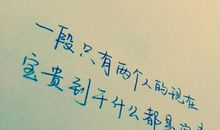 一段只有两个人的现在
宝贵到干什么都是